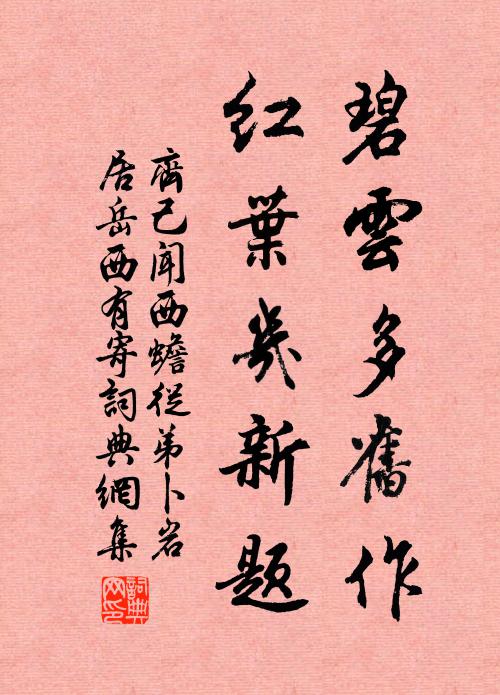 碧雲多舊作
紅葉幾新題
齊己聞西蟾從弟卜岩
居岳西有寄詞典網集
詞典
网印